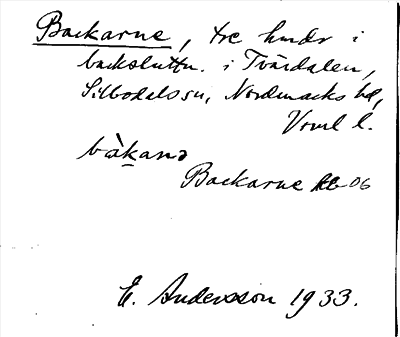 Backarne, tre hmdr i
backsluttn. i Tvärdalen,
Silbodals sn, Nordmarks hd,
Vrml l.
bàkanə
Backarne Kb 06
E. Andersson 1933.